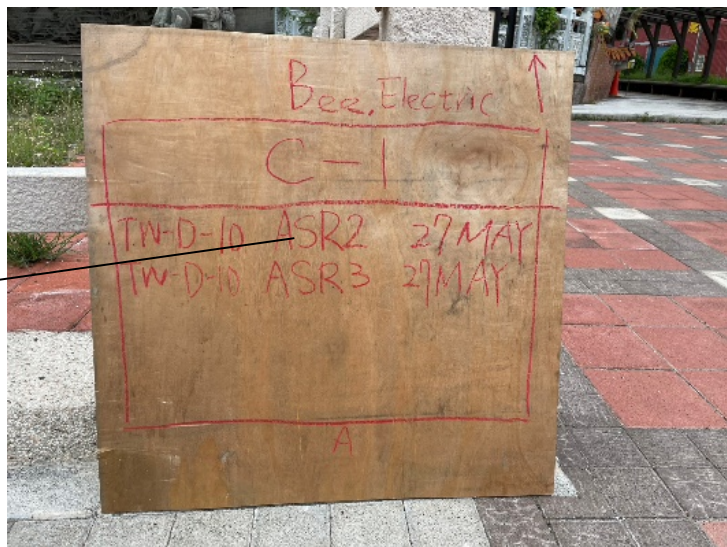 Bee, Electric
C-1
TW-D-10 ASR2 27MAY
TW-D-10 ASR3 27MAY
A